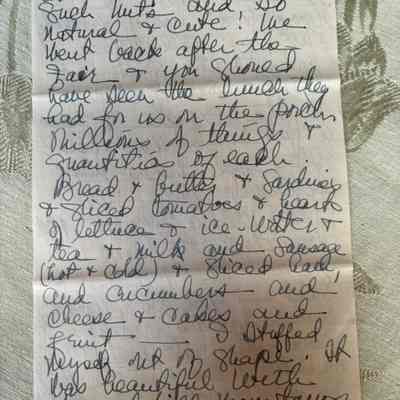 such nuts and so
natural & cute! We
went back after the
Fair & you should
have seen the lunch they
had for us on the porch
Millions of things &
quantities of each.
Bread & butter & Sardines
& sliced tomatoes & hearts
of lettuce & ice-water &
tea & milk and sausage
(hot & cold) & sliced ham,
and cucumbers and
cheese & cakes and
fruit — I stuffed
myself out of shape. It
was beautiful with